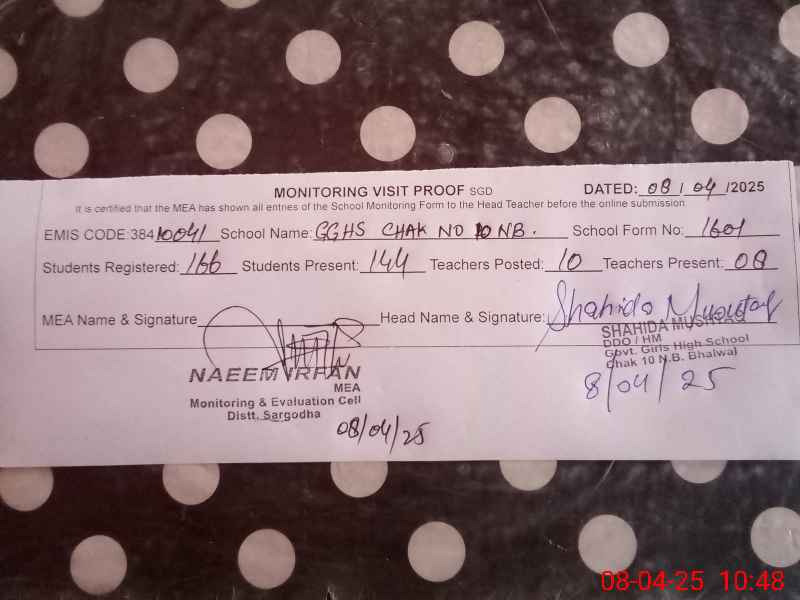 MONITORING VISIT PROOF SGD DATED: 08/04/2025
It is certified that the MEA has shown all entries of the School Monitoring Form to the Head Teacher before the online submission.
EMIS CODE:38410041 School Name: GGHS CHAK NO 10 NB. School Form No: 1601
Students Registered: 166 Students Present: 144 Teachers Posted: 10 Teachers Present: 08
MEA Name & Signature Head Name & Signature: Shahida Mushtaq
NAEEM IRFAN
MEA
Monitoring & Evaluation Cell
Distt. Sargodha
08/04/25
SHAHIDA MUSHTAQ
DDO / HM
Govt. Girls High School
Chak 10 N.B. Bhalwal
8/04/25
08-04-25 10:48